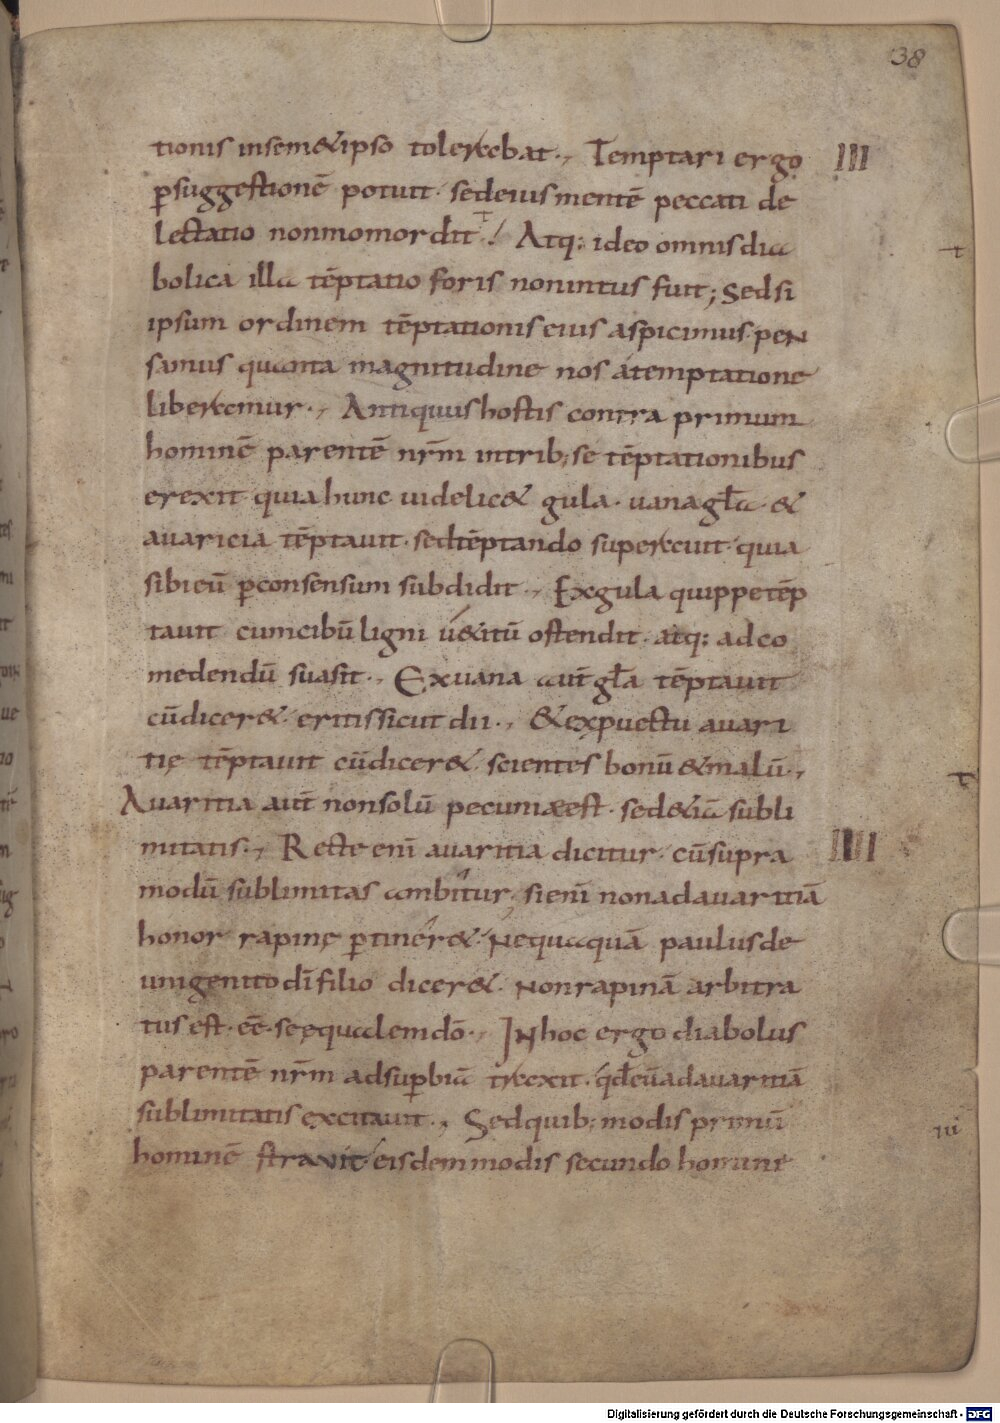 38
tionis in sem& ipso tolerabat., Temptari ergo III
p̱suggestionē potuit· sed eius mentē peccati de
lectatio non momordit! Atq: ideo omnis dia
bolica illa tēptatio foris non intus fuit; Sed si
ipsum ordinem tēptationis eius aspicimus· peN
samus quanta magnitudine nos átemptatione
liberamur·, Antiquus hostis contra primum
hominē parentē nr̄m in trib; se tēptationibus
erexit quia hunc uidelic& gula· uana gl̄a· &
auaricia tēptauit· sed tēptando superauit· quia
sibi eū p̱consensum subdidit·, Ex gula quippe tēp
tauit cum cibū ligni u&itū ostendit· atq: ad co
medendū suasit·, Ex uana aut̄ gl̄a tēptauit
cū dicer&· eritis sicut dii·, & ex puectu auari
tię tēptauit cū dicer&· scientes bonū & malū·,
Auaritia aut̄ non solū pecuniæ est· sed &iā subli
mitatis·, Recte enī auaritia dicitur· cū supra IIII
modū sublimitas ambitur· si enī non ad auaritiā
honor rapinę p̱tiner&· Nequaquā paulus de
unigenito dī filio dicer&· Non rapinā arbitra
tus est· eē· se ęqualem dō·, IN hoc ergo diabolus
parentē nr̄m ad sup̱biā traxit· qđ eū ad auaritiā
sublimitatis excitauit·, Sed quib; modis primū
hominē strauit· eisdem modis secundo homine
Digitalisierung gefördert durch die Deutsche Forschungsgemeinschaft - DFG